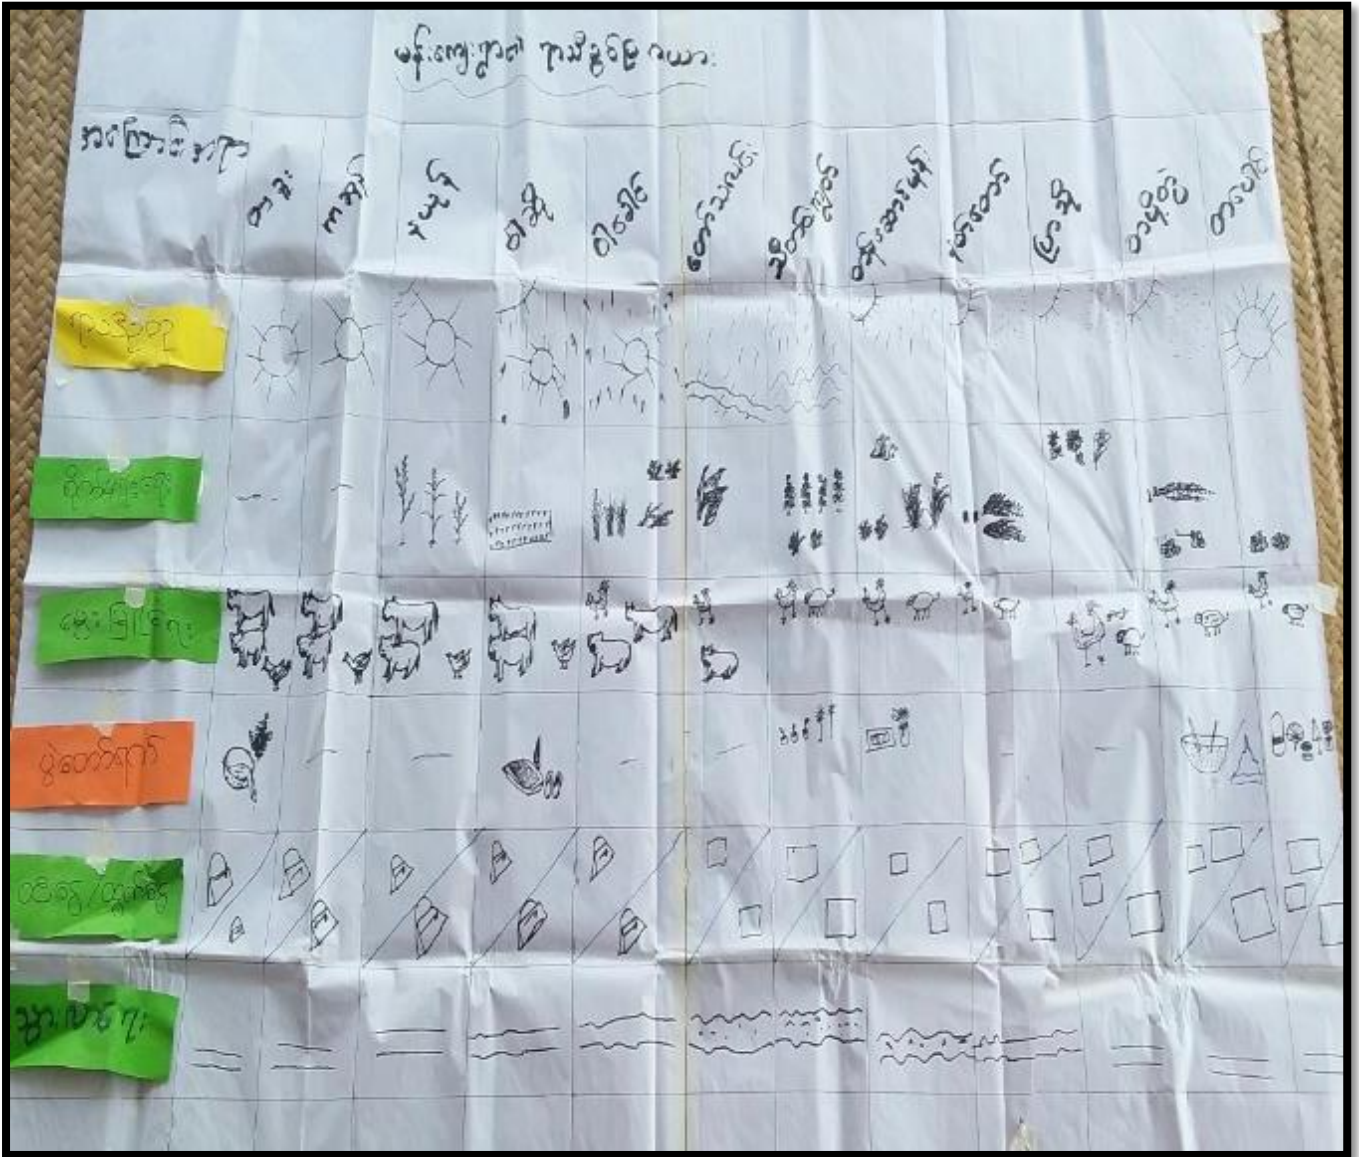 မန်းကျေးရွာ၏ ရာသီခွင်ပြ ဇယား
အကြောင်းအရာ
တန်ခူး
ကဆုန်
နယုန်
ဝါဆို
ဝါခေါင်
တော်သလင်း
သီတင်းကျွတ်
တန်ဆောင်မုန်း
နတ်တော်
ပြာသို
တပို့တွဲ
တပေါင်း
ရာသီဥတု
စိုက်ပျိုးရေး
မွေးမြူရေး
ပွဲတော်ရက်
ဝင်ငွေ/ထွက်ငွေ
သွားလာရေး